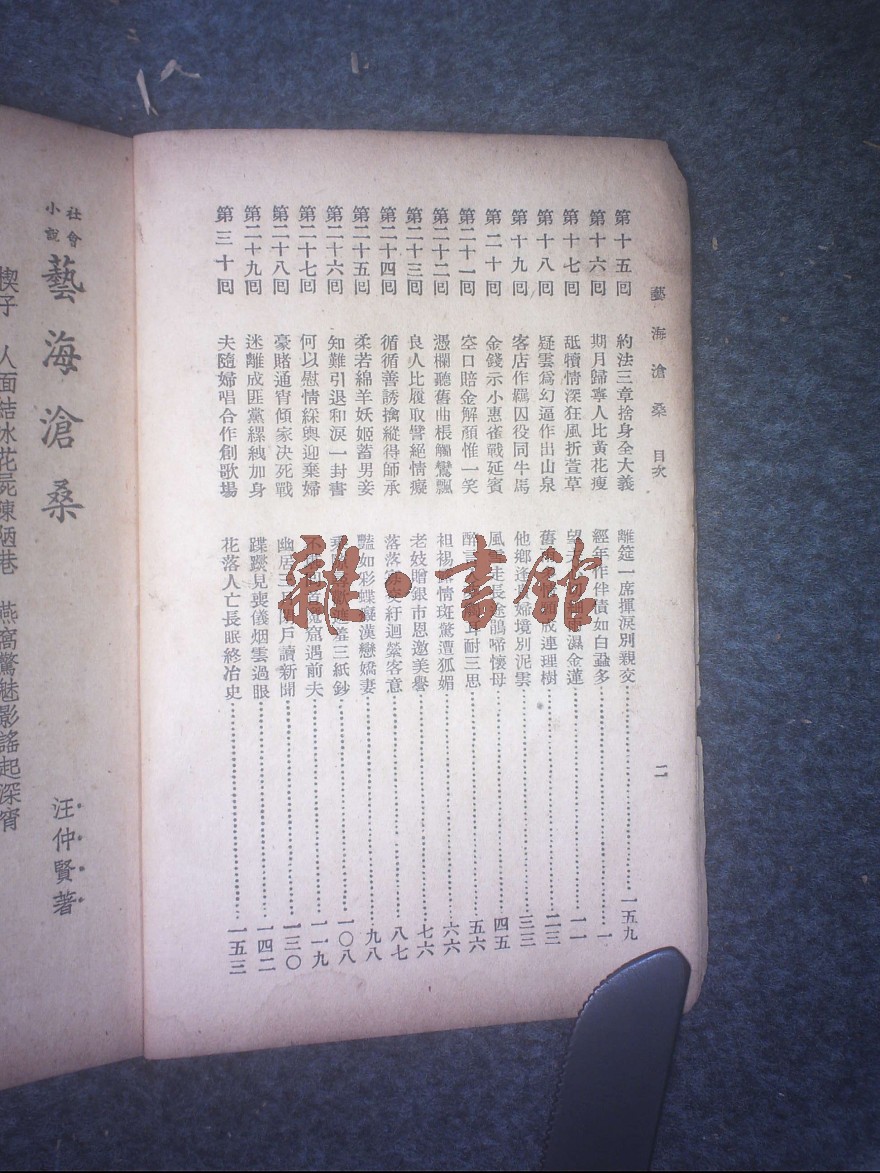 藝海滄桑 目次 二
第十五回 約法三章捨身全大義 離筵一席揮淚別親交 一五九
第十六回 期月歸寧人比黃花瘦 經年作伴債如白蝨多 一
第十七回 舐犢情深狂風折萱草 望夫 濕金蓮 一一
第十八回 疑雲爲幻逼作出山泉 舊 成連理樹 二三
第十九回 客店作羈囚役同牛馬 他鄉逢 婦境別泥雲 三三
第二十回 金錢示小惠雀戰延賓 風 走長途鵑啼懷母 四五
第二十一回 空口賠金解頤惟一笑 醉言 耐三思 五六
第二十二回 憑欄聽舊曲棖觸鸞飄 袒裼 情斑驚遭狐媚 六六
第二十三回 良人比屨取譬絕情癡 老妓贈銀市恩邀美譽 七六
第二十四回 循循善誘擒縱得師承 落落 紆迴縈客意 八七
第二十五回 柔若綿羊妖姬蓄男妾 豔如彩蝶癡漢戀嬌妻 九八
第二十六回 知難引退和淚一封書 羞三紙鈔 一〇八
第二十七回 何以慰情綵輿迎棄婦 不 窟遇前夫 一一九
第二十八回 豪賭通宵傾家決死戰 幽居三 戶讀新聞 一三〇
第二十九回 迷離成匪黨縲絏加身 蹀躞見喪儀烟雲過眼 一四二
第三十回 夫隨婦唱合作創歌場 花落人亡長眠終冶史 一五三
社會小說
藝海滄桑
汪仲賢著
楔子 人面結冰花屍陳陋巷 燕窩驚魅影謠起深宵
雜·書館